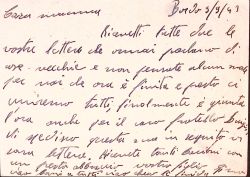 Cara mamma Bordo 3/9/43
Ricevetti tutte due le
vostre lettere che ormai parlano di
cose vecchie e non pensate alcun male
per noi da ora è finita e presto ci
uniremo tutti, finalmente è giunta
l'ora anche per il caro fratello Luigi
di spedirvi questa mia in seguito vi
sarà lettere. Ricevete tanti bacioni con
un forte abbraccio vostro figlio
cari tutti